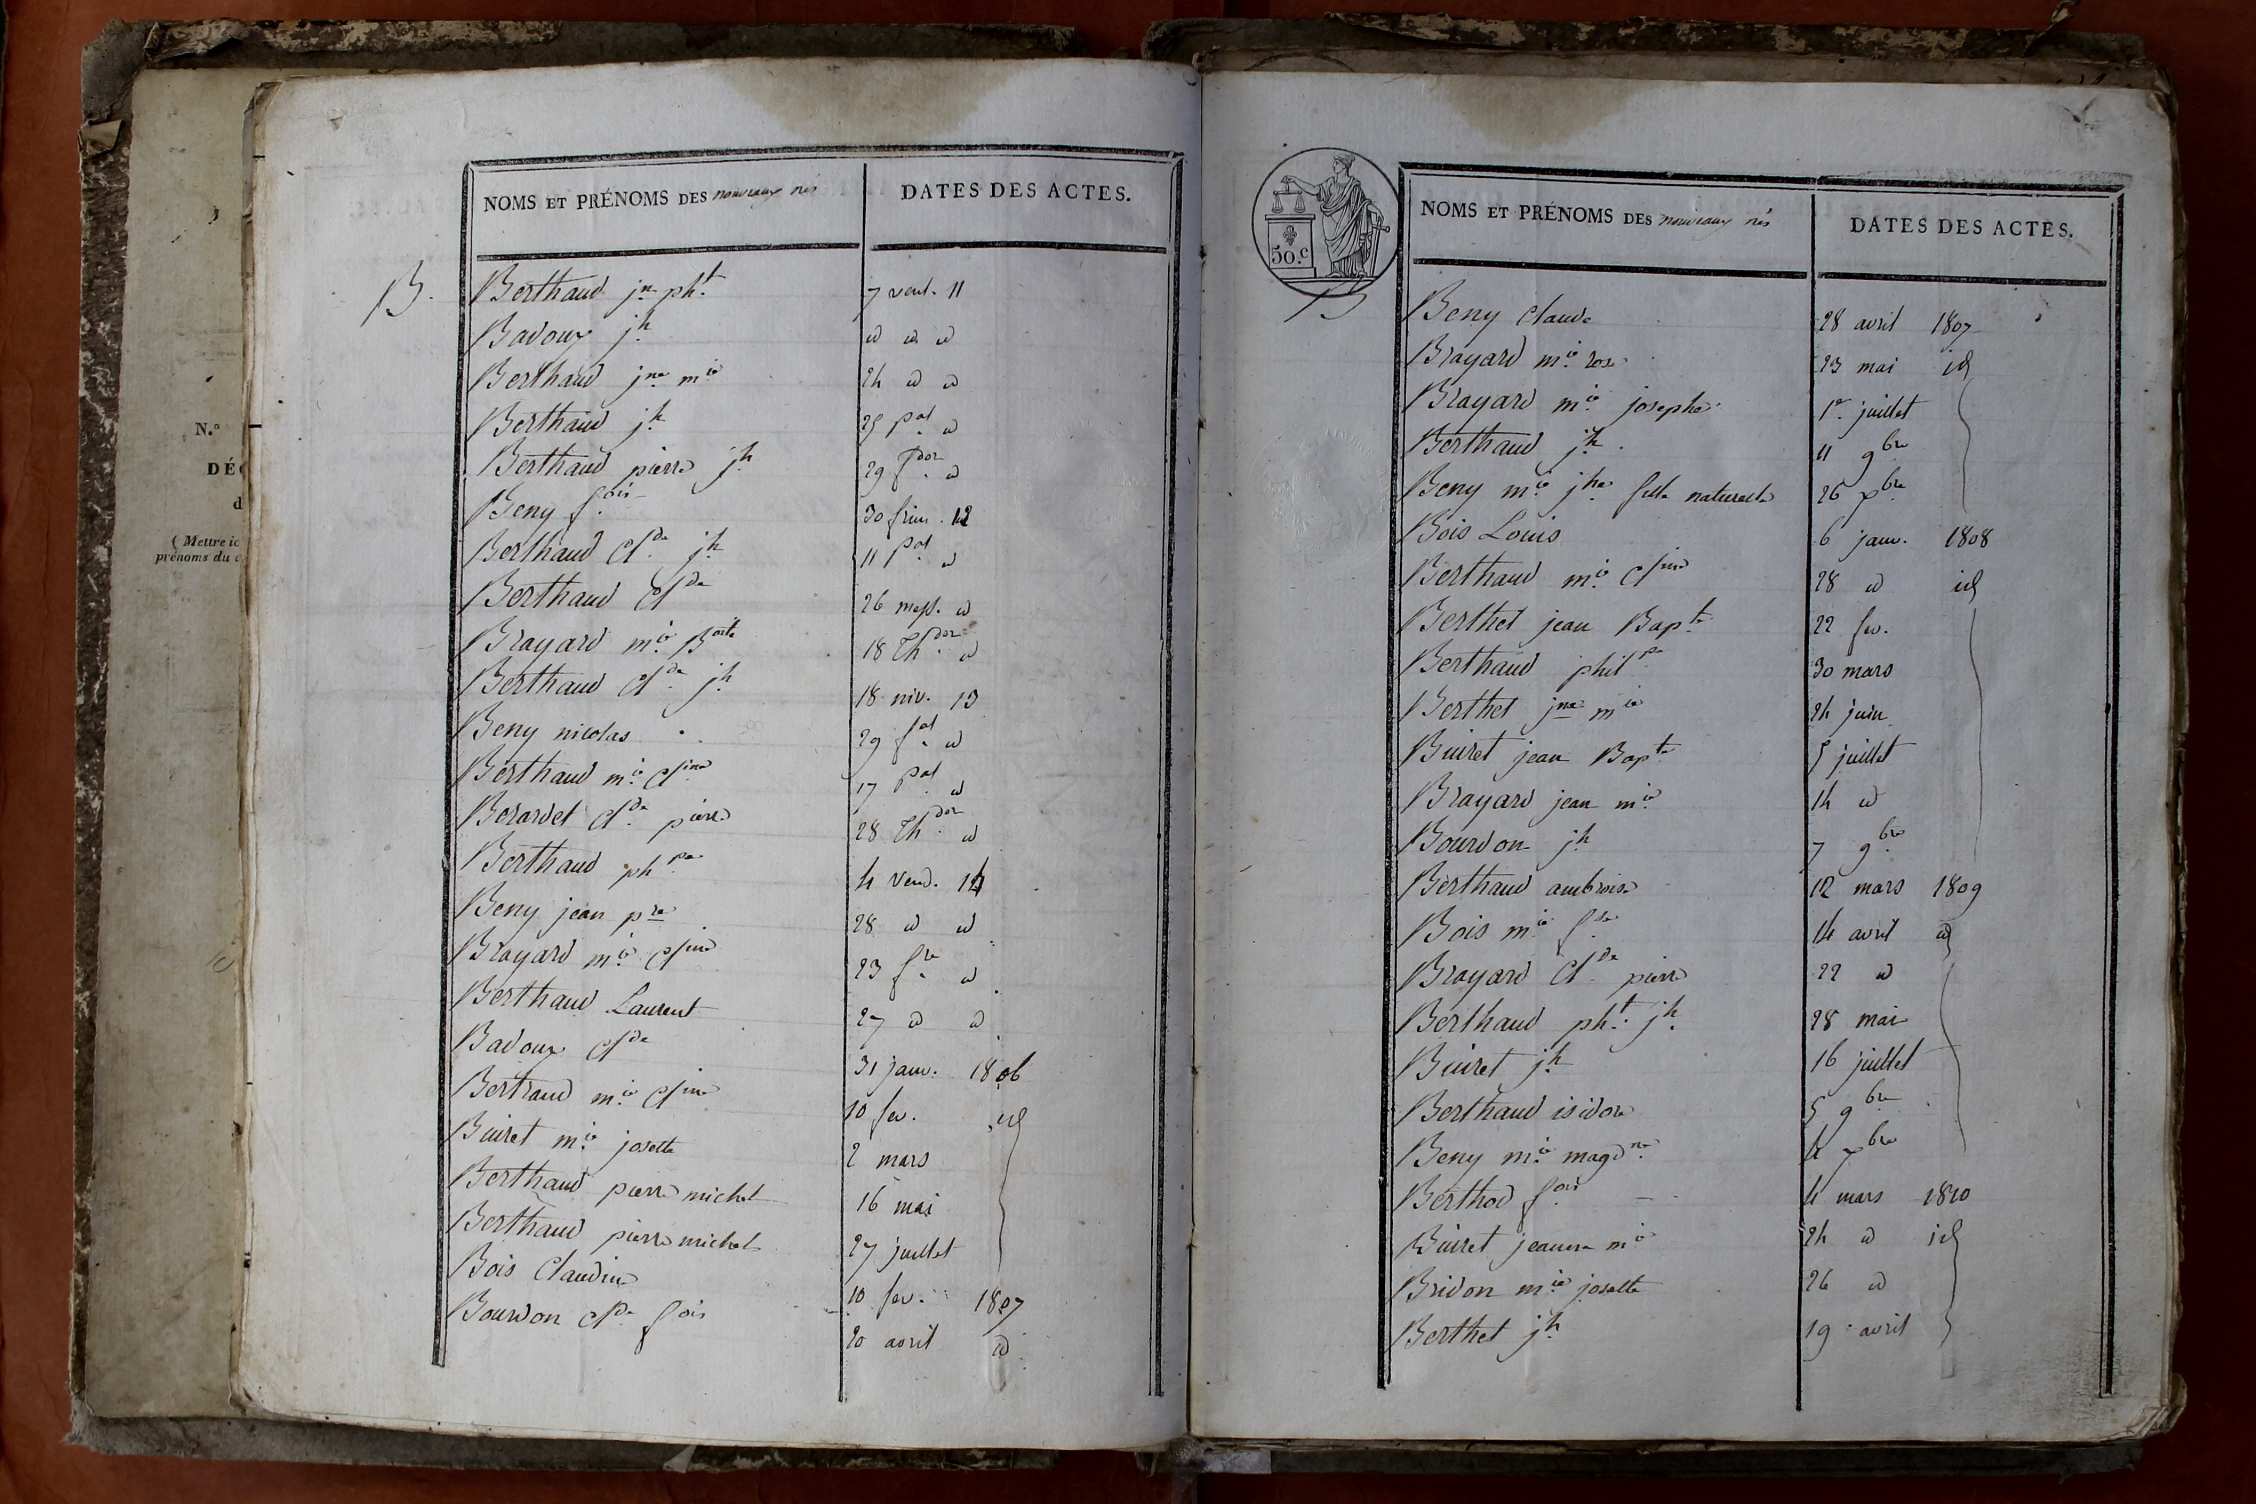 N.o
DÉ
d
( Mettre ic
prénoms du
NOMS ET PRÉNOMS DES nouveaux nés DATES DES ACTES.
B.
Berthaud jn pht. 7 vent. 11
Badoux jh. id id id
Berthaud jne mie 24 id id
Berthaud jh 25 pal. id
Berthaud pierre jh 29 fdor. id
Beny fois. 30 frim. 12
Berthaud Cde. jh 11 pal. id
Berthaud Cde 26 mess. id
Brayard mie Bart 18 Thdor. id
Berthaud Cde. jh 18 niv. 13
Beny nicolas 29 fal. id
Berthaud mie Cine 17 pal. id
Berardet Cde. pierre 28 Thdor. id
Berthaud phpe 4 vend. 14
Beny jean pre 28 id id
Brayard mie Cine 23 fre. id
Berthaud Laurent 27 id id
Badoux Cde 31 janv. 1806
Bertraud mie Cine 10 fev. id
Buiret mie josette 2 mars
Berthaud pierre michel 16 mai
Berthaud pierre michel 27 juillet
Bois Claudine 10 fev. 1807
Bourdon Cde fois 20 avril id
50.c
NOMS ET PRÉNOMS DES nouveaux nés DATES DES ACTES.
B
Beny Claude 28 avril 1807
Brayard mie rose 23 mai id
Brayard mie josephe 1er juillet
Berthaud jh. 11 9bre
Beny mie jhe fille naturelle 26 xbre
Bois Louis 6 janv. 1808
Berthaud mie Cine 28 id id
Berthet jean Bapte 22 fev.
Berthaud philpe 30 mars
Berthet jne mie 24 juin
Buiret jean Bapte 5 juillet
Brayard jean mie 14 id
Bourdon jh 7 9bre
Berthaud ambroise 12 mars 1809
Bois mie fse 14 avril id
Brayard Cde pierre 22 id
Berthaud pht. jh. 28 mai
Buiret jh 16 juillet
Berthaud isidore 5 9bre
Beny mie magdne 4 xbre
Berthod fois. 4 mars 1810
Buiret jeanne mie 24 id id
Bridon mie josette 26 id
Berthet jh. 19 avril